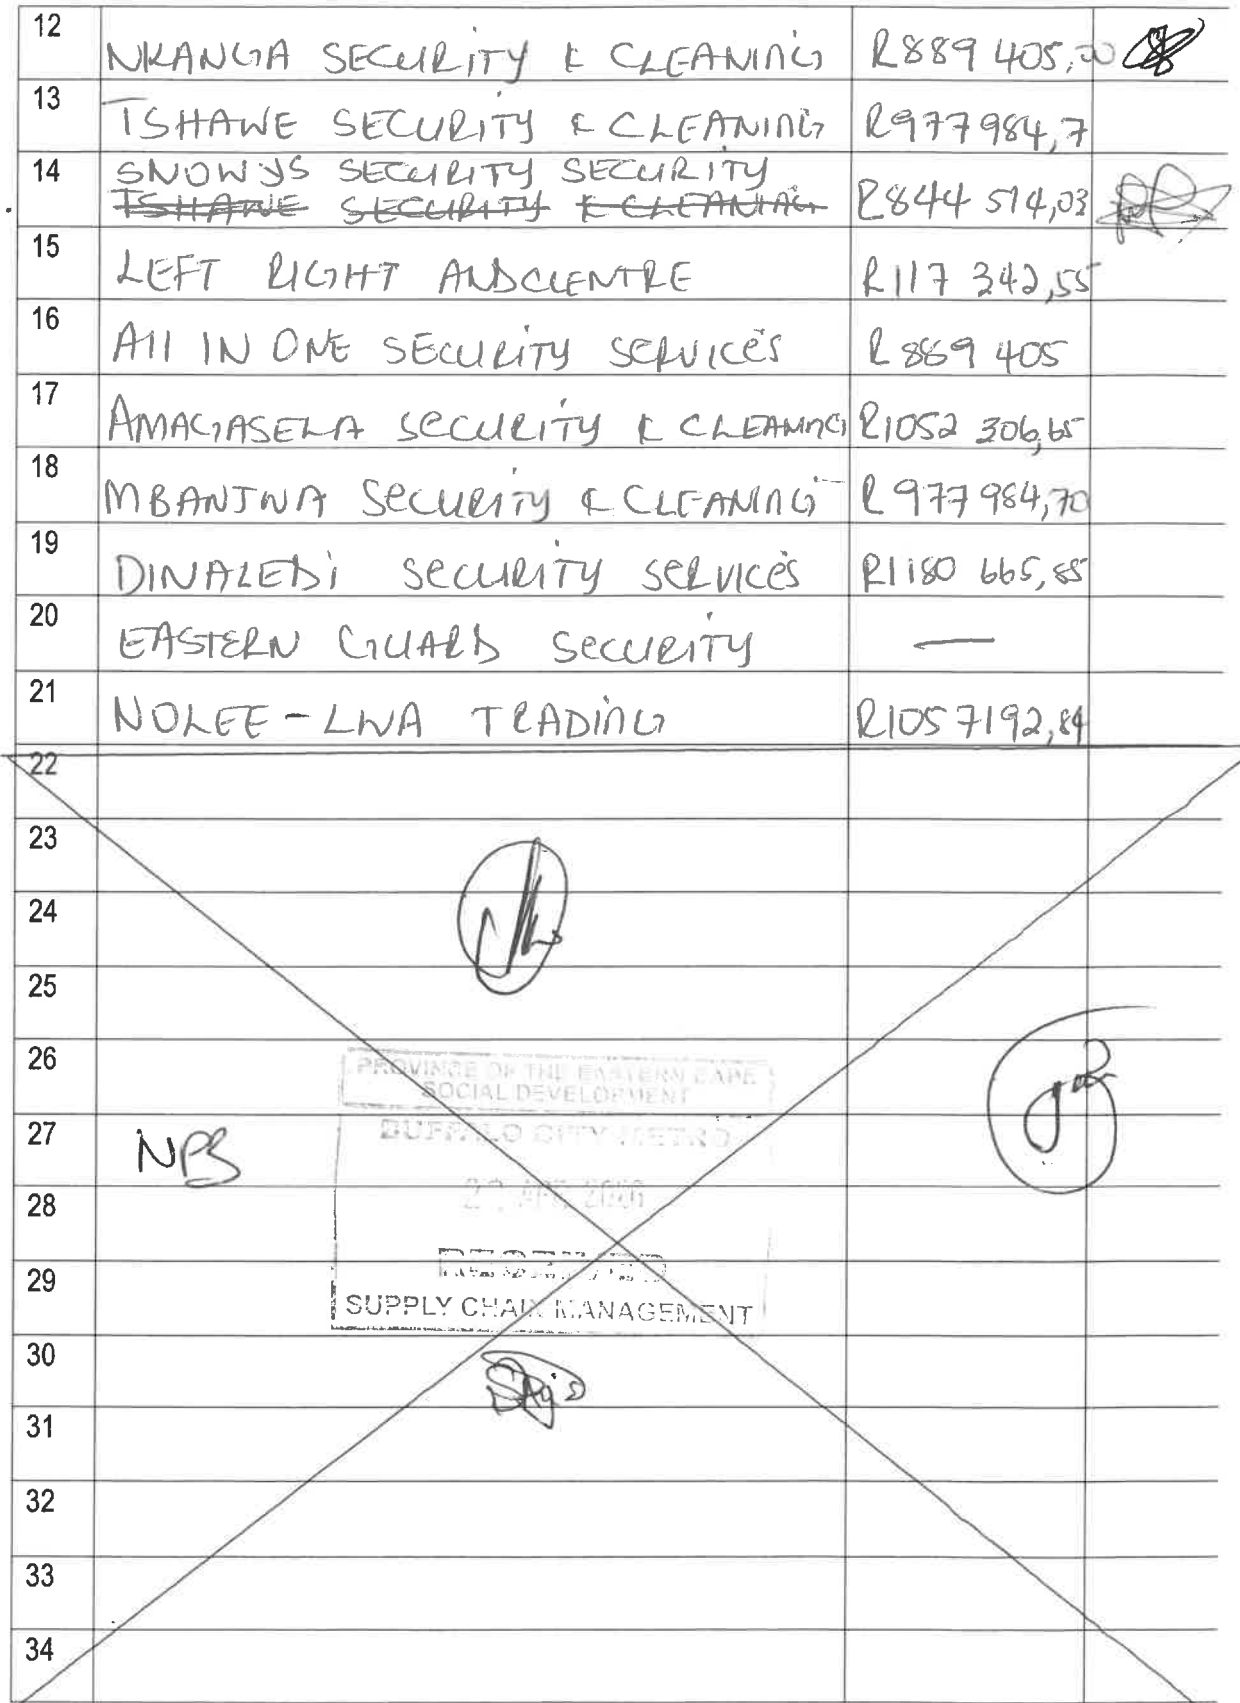 12 NKANGA SECURITY & CLEANING R889 405,00
13 TSHAWE SECURITY & CLEANING R977984,7
14 SNOWYS SECURITY SECURITY
TSHAWE SECURITY & CLEANING R844 514,03
15 LEFT RIGHT AND CENTRE R117 342,55
16 All IN ONE SECURITY SERVICES R 889 405
17 AMAGASELA SECURITY & CLEANING R1052 306,65
18 MBANJWA SECURITY & CLEANING R 977 984,70
19 DINALEDI SECURITY SERVICES R1180 665,85
20 EASTERN GUARD SECURITY —
21 NOLEE-LWA TRADING R105 7192,84
22
23
24
25
26 PROVINCE OF THE EASTERN CAPE
SOCIAL DEVELOPMENT
27 BUFFALO CITY METRO
28
29 RECEIVED
SUPPLY CHAIN MANAGEMENT
30
31
32
33
34